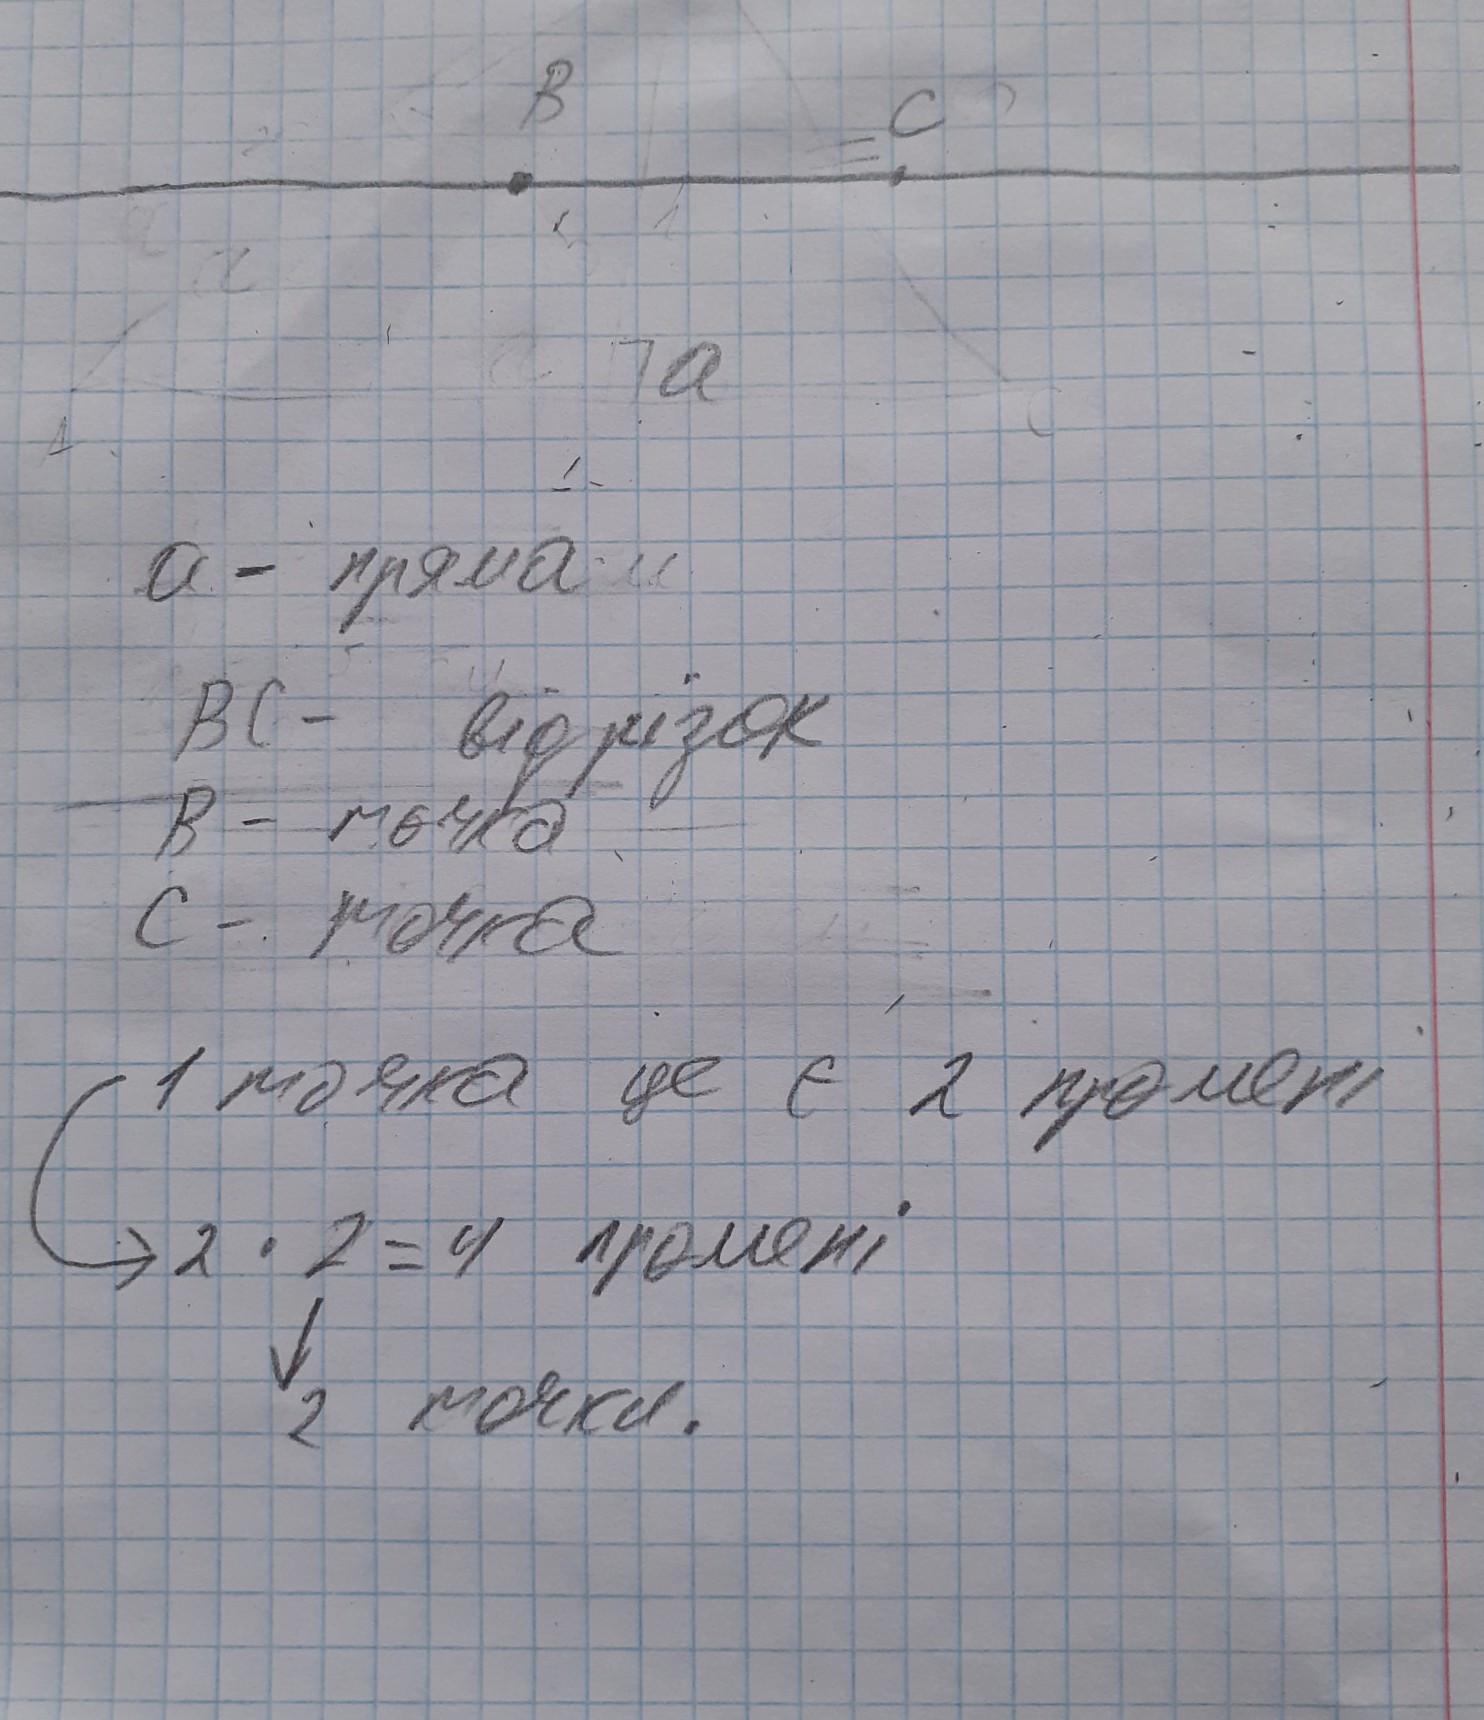 B
C
a
a - пряма
BC - відрізок
B - точка
C - точка
1 точка це є 2 промені
2 · 2 = 4 промені
2 точки.